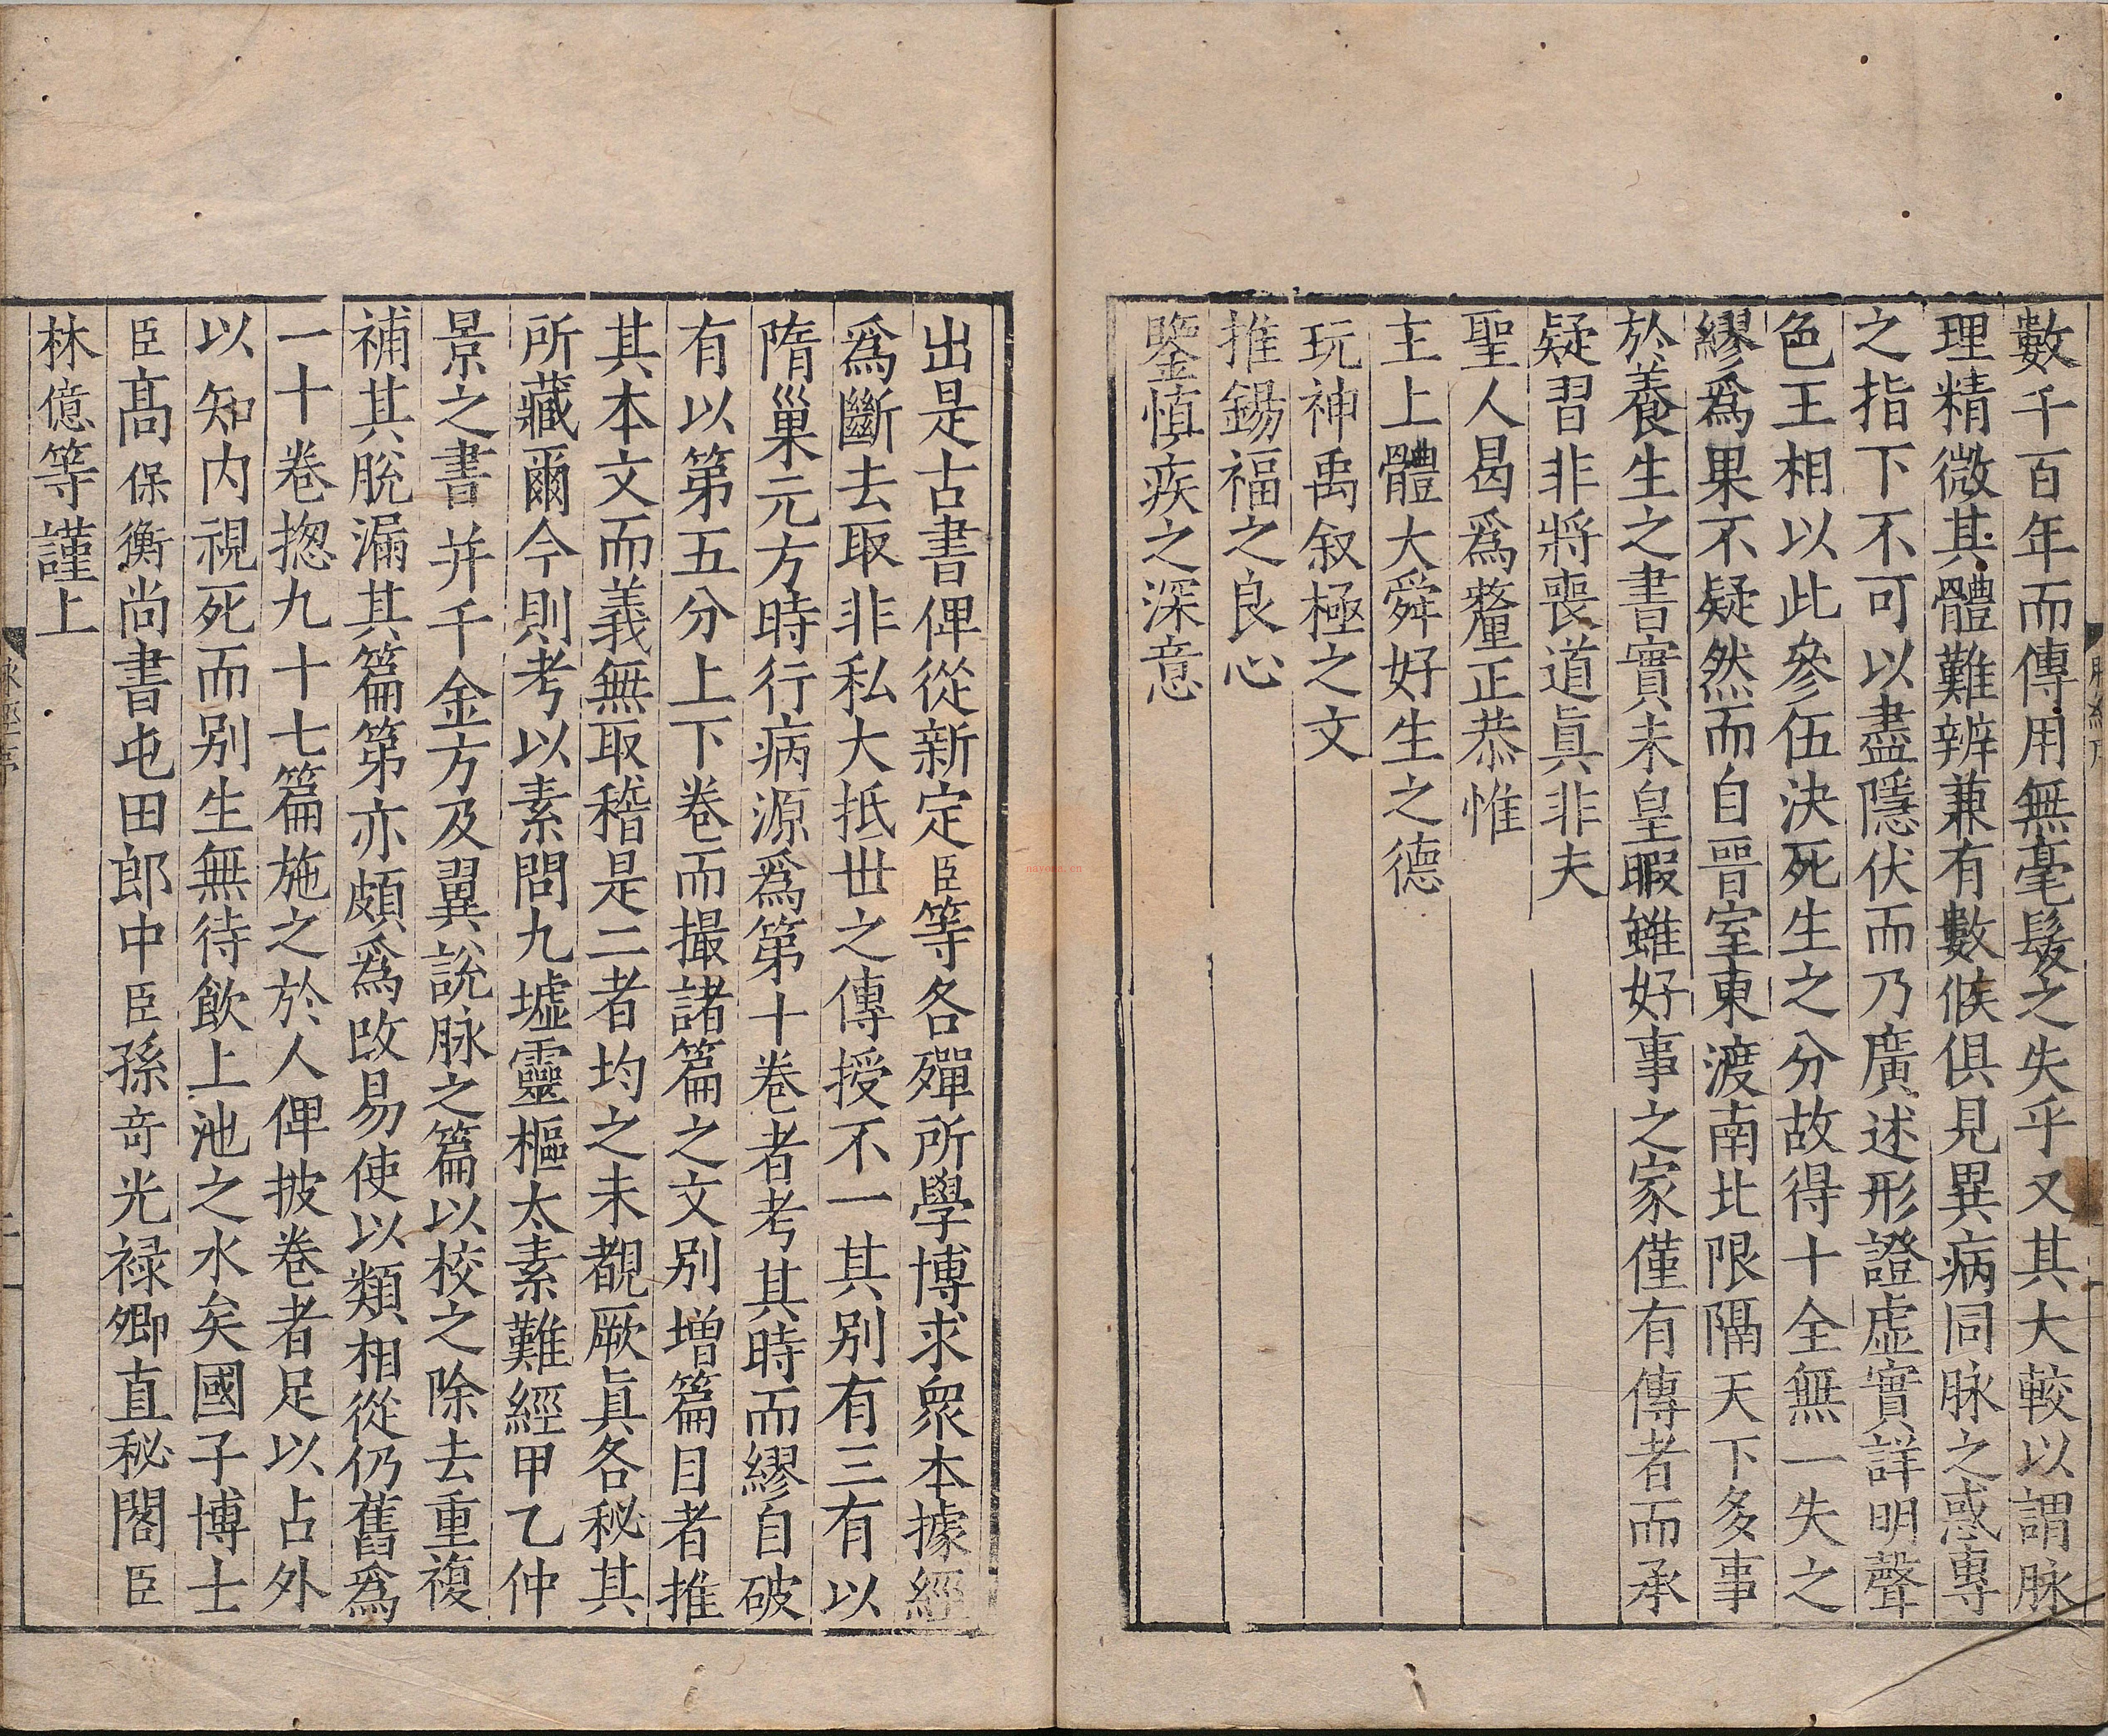 數千百年而傳用無毫髮之失乎又其大較以謂脉
理精微其體難辨兼有數候俱見異病同脉之惑專
之指下不可以盡隱伏而乃廣述形證虚實詳明聲
色王相以此參伍決死生之分故得十全無一失之
繆爲果不疑然而自晉室東渡南北限隔天下多事
於養生之書實未皇暇雖好事之家僅有傳者而承
疑習非將喪道眞非夫
聖人曷爲釐正恭惟
主上體大舜好生之德
玩神禹叙極之文
推錫福之良心
鑒慎疾之深意
出是古書俾從新定臣等各殫所學博求衆本據經
爲斷去取非私大抵世之傳授不一其别有三有以
隋巢元方時行病源爲第十卷者考其時而繆自破
有以第五分上下卷而撮諸篇之文别增篇目者推
其本文而義無取稽是二者均之未覩厥眞各秘其
所藏爾今則考以素問九墟靈樞太素難經甲乙仲
景之書并千金方及翼說脉之篇以校之除去重複
補其脫漏其篇第亦頗爲改易使以類相從仍舊爲
一十卷揔九十七篇施之於人俾披卷者足以占外
以知内視死而别生無待飲上池之水矣國子博士
臣高保衡尚書屯田郎中臣孫奇光禄卿直秘閣臣
林億等謹上
脉經序
nayona.cn